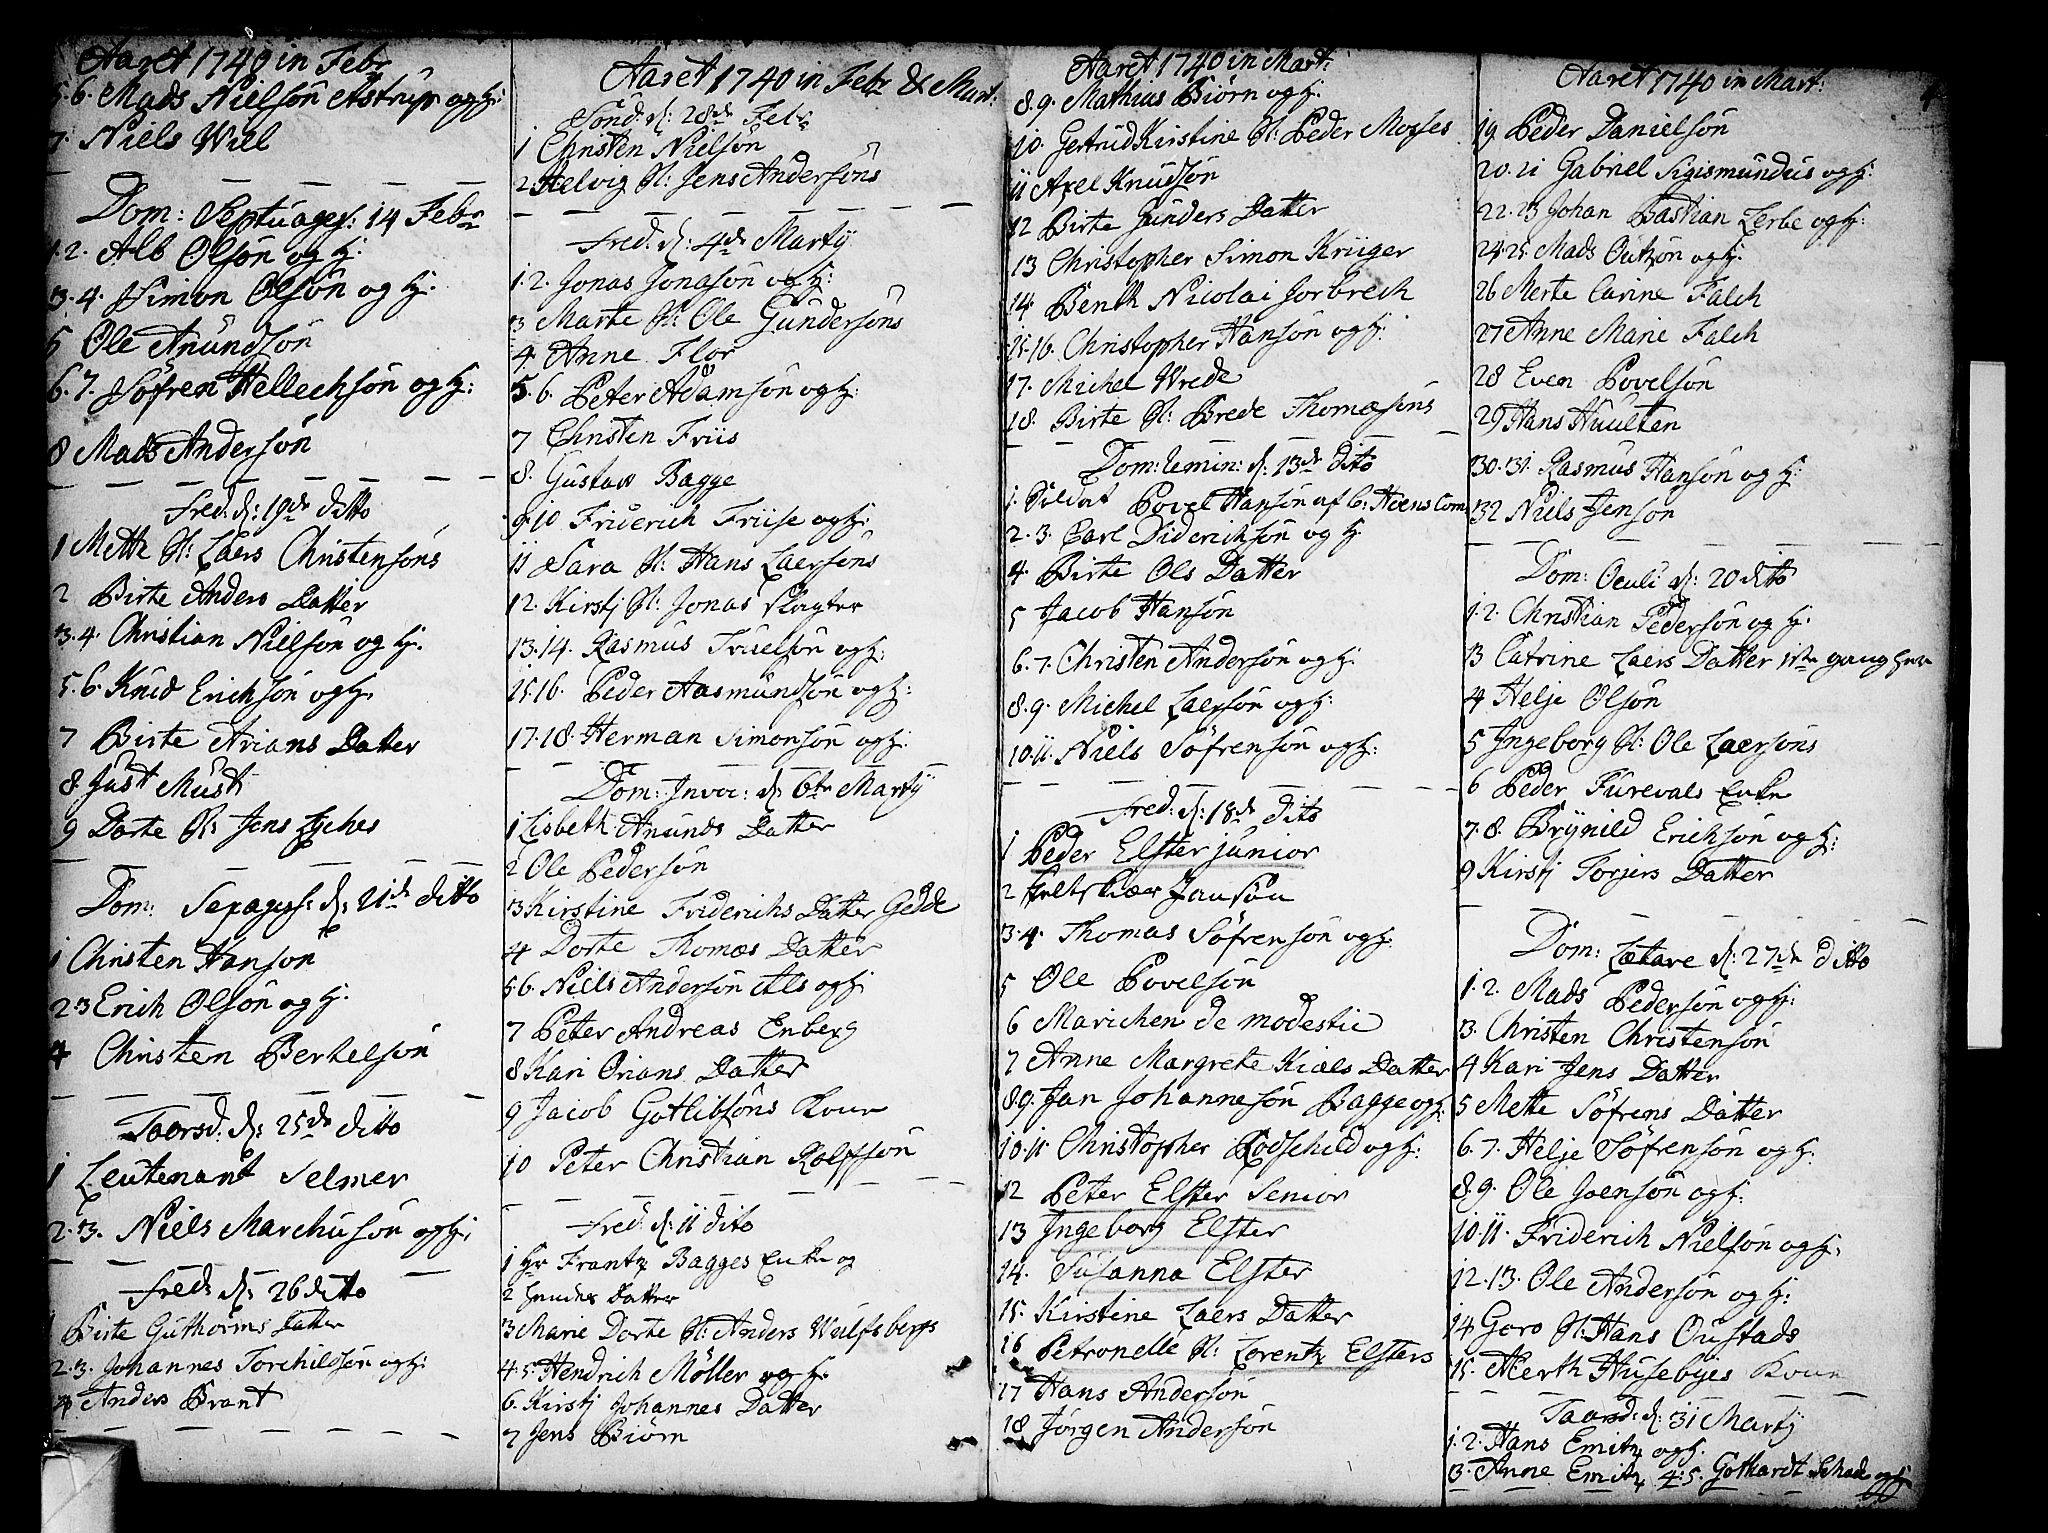 Aaret 1740 in Febr
5.6. Mads Nielsøn Astrup og H:
7. Niels Will
Dom: Septuages: 14 Febr
1.2. Alb Olsøn og H:
3.4. Simon Olsøn og H:
5 Ole Anundsøn
6.7. Søfren Hellechsøn og H:
8 Mads Andersøn
Fred: d: 19de ditto
1 Mette H: Laers Christensøns
2 Birte Anders Datter
3.4. Christian Nielsøn og H:
5.6. Knud Erichsøn og H:
7 Birte Arians Datter
8. Just Must
9 Dorte H: Jens Lyches
Dom: Sexagess: d: 21de ditto
1 Christen Hansøn
2 3 Erich Olsøn og H:
4 Christen Bertelsøn
Taarsd: d: 25de ditto
1 Leutenant Selmer
2.3. Niels Marchusøn og H:
Fred: d: 26 ditto
1 Birte Guthorms Datter
2.3. Johannes Torchildsøn og H:
4 Anders Brant
Aaret 1740 in Febr & Mart:
Sønd: d: 28de Febr
1 Christen Nielsøn
2. Helvig H: Jens Andersøns
Fred: d: 4de Martij
1.2. Jonas Jonasøn og H:
3 Marte H: Ole Gundersøns
4. Anne Flor
5.6. Peter Adamsøn og H:
7 Christen Friis
8. Gustav Bagge
9.10 Friderich Friise og H:
11 Sara H: Hans Laersøns
12. Kirstj H: Jonas Slagter
13.14. Rasmus Truelsøn og H:
15 16. Peder Aasmundsøn og H:
17.18. Herman Simonsøn og H:
Dom: Invoc: d: 6te Martij
1 Lisbeth Anunds Datter
2 Ole Pedersøn
3 Kirstine Friderichs Datter Gedde
4 Dorte Thomæs Datter
5 6. Niels Andersøn Als og H:
7 Peter Andreas Enberg
8 Kari Orians Datter
9 Jacob Gotlibsøns Kone
10 Peter Christian Rolfssøn
Fred: d: 11 dito
1 Hr Frantz Bagges Enke og
2 hendes Datter
3 Marie Dorte H: Anders Wulfsbergs
4.5. Hendrich Møller og H:
6. Kirstj Johannes Datter
7 Jens Biørn
Aaret 1740 in Mart:
8.9. Mathias Biørn og H:
10. Gertrud Kirstine H: Peder Moses
11 Axel Knudsøn
12 Birte Gunders Datter
13 Christopher Simon Krüger
14 Benth Nicolai Jorbrech
15.16. Christopher Hansøn og H:
17. Michel Wrede
18. Birte H: Brede Thomæsøns
Dom: Remin: d: 13de dito
1. Soldat Povel Hansøn af C: Heens Com
2.3. Carl Diderichsøn og H:
4. Birte Ols Datter
5 Jacob Hansøn
6.7. Christen Andersøn og H:
8.9. Michel Laersøn og H:
10.11. Niels Søfrensøn og H:
Fred: d: 18de dito
1 Peder Elster junior
2 Feltskiær Jansøn
3.4. Thomas Søfrensøn og H:
5 Ole Povelsøn
6 Marichen de modestie
7 Anne Margrete Kiæls Datter
8.9. Jan Johannesøn Bagge og H:
10.11 Christopher Rodschild og H:
12 Peter Elster Senior
13 Ingeborg Elster
14. Susanna Elster
15. Kirstine Laers Datter
16 Petronelle H: Lorentz Elsters
17 Hans Andersøn
18 Jørgen Andersøn
Aaret 1740 in Mart:
19 Peder Danielsøn
20.21 Gabriel Sigismundus og H:
22.23 Johan Bastian Lerbe og H:
24.25. Mads Outzøn og H:
26 Merte Carine Falch
27 Anne Marie Falch
28 Even Povelsøn
29 Hans Huulten
30.31. Rasmus Hansøn og H:
32 Niels Jensøn
Dom: Oculi d: 20 dito
1.2. Christian Pedersøn og H:
3 Catrine Laers Datter 1ste gang
4 Helje Olsøn
5 Ingeborg H: Ole Laersøns
6 Peder Furevals Enke
7.8. Brynild Erichsøn og H:
9 Kirstj Torjers Datter
Dom: Lætare d: 27de ditto
1.2. Mads Pedersøn og H:
3. Christen Christensøn
4 Kari Jens Datter
5 Mette Søfrens Datter
6.7. Helje Søfrensøn og H:
8.9. Ole Joensøn og H:
10.11. Friderich Nielsøn og H:
12.13. Ole Andersøn og H:
14 Goro H: Hans Oustads
15. Husebyes Kone
Taarsd: d: 31 Martij
1.2. Hans Emitz og H:
3. Anne Emitz 4.5. Gothardt Schade og H: